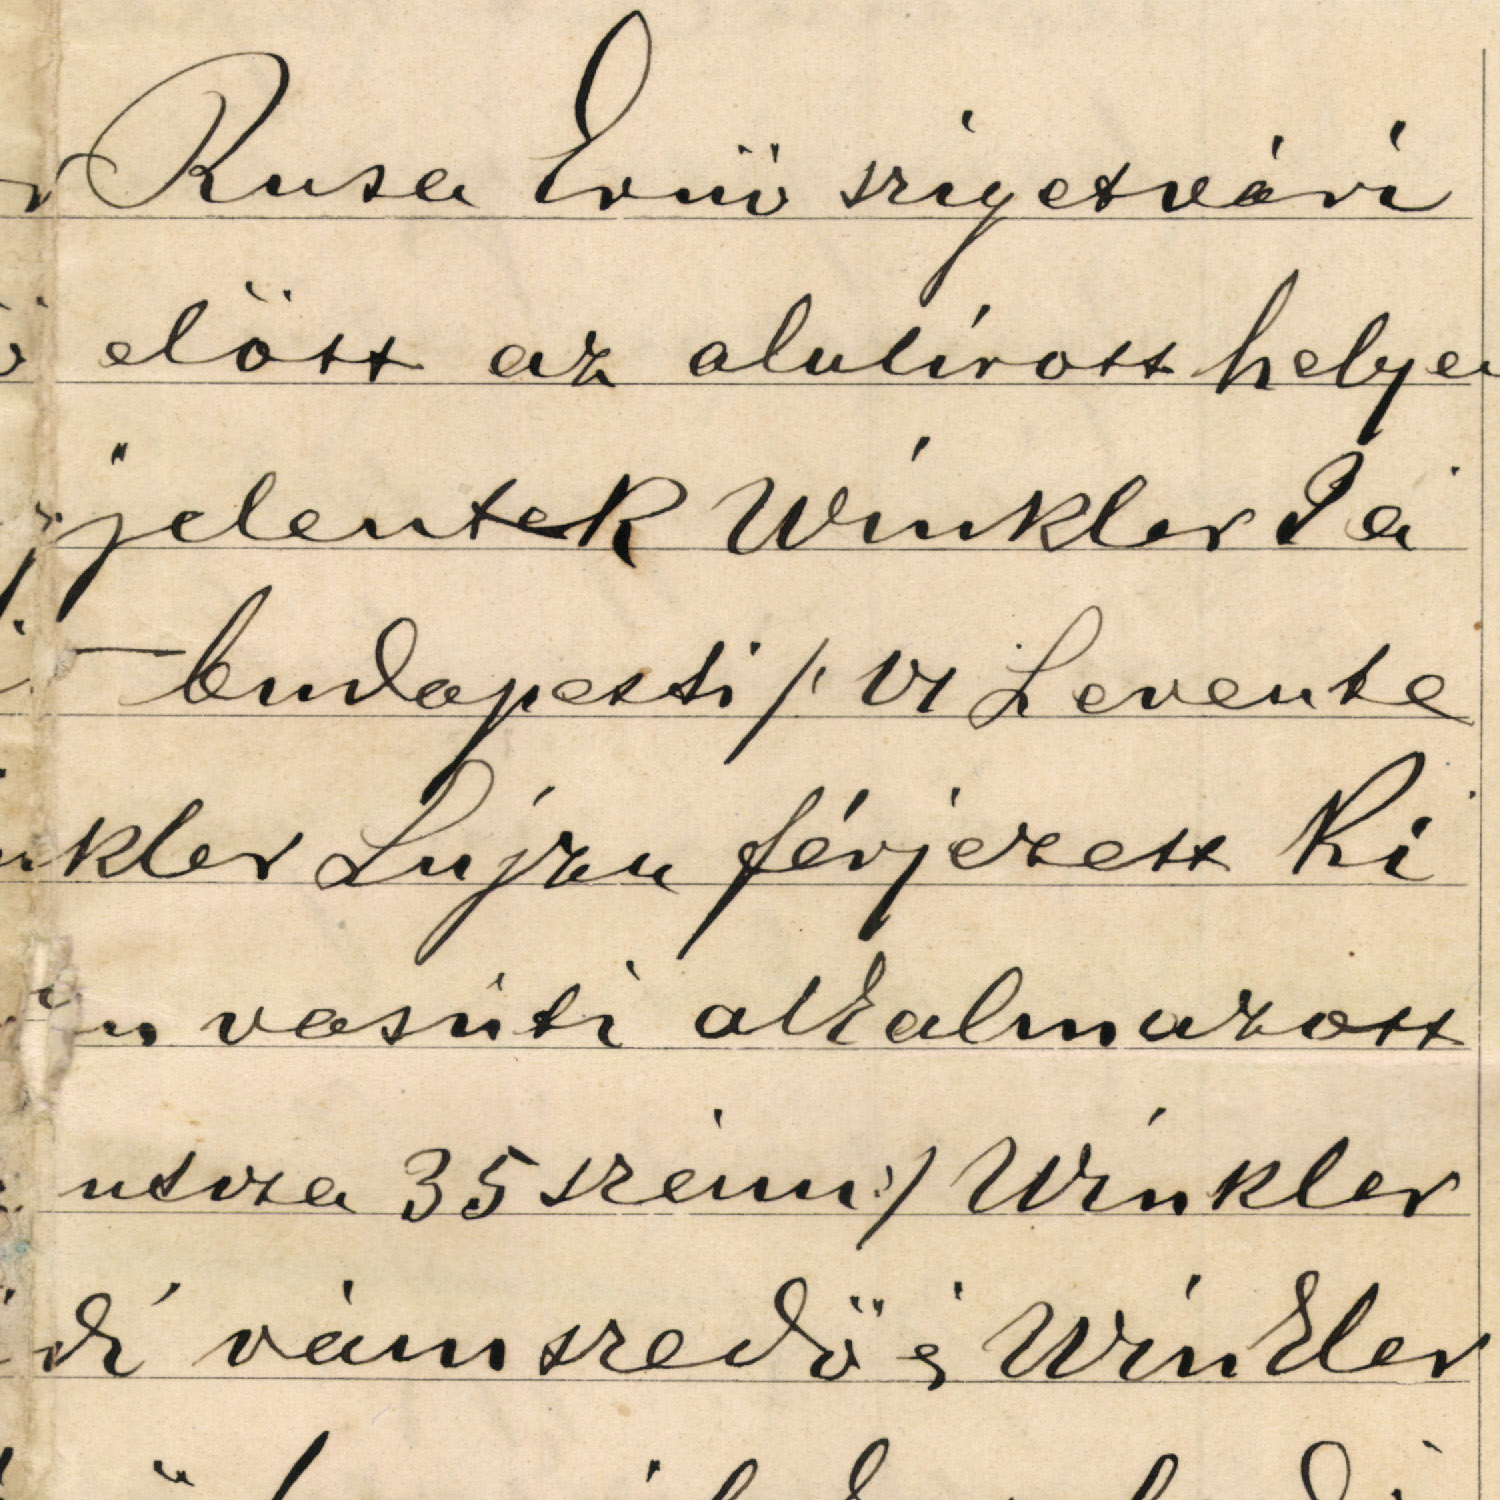 Rusa Ernő szigetvári
előtt az alulírott helyen
jelentek Winkler Já
budapesti /: VI Levente
Lujza férjezett Ki
vasúti alkalmazott
utcza 35 szám :/ Winkler
vámszedő és Winkler